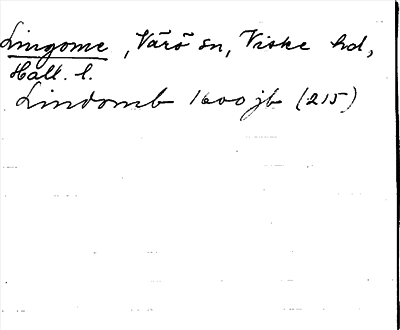 Lingome, Värö sn, Viske hd,
Hall. l.
Lindomb 1600 jb (215)